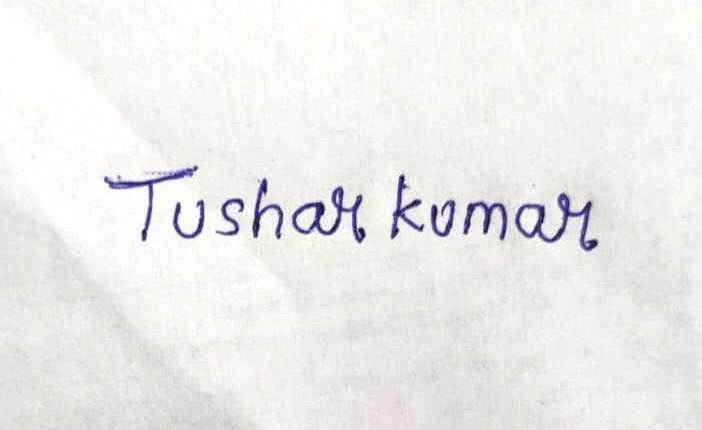 Tushar kumar